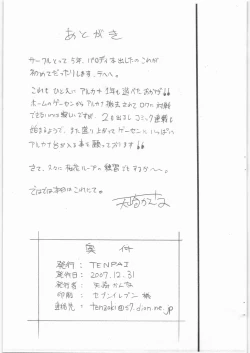 あとがき
サークルとって5年、パロディ本出したのこれが
初めてだったりします、テヘへ。
これも ひとえに アルカナ 1年も遊べたおかげ!!
ホームのゲーセンから アルカナ 撤去されて ロケの対戦
できないのは寂しいですが、2も出るし コミック連載も
始まるようで、また盛り上がって ゲーセンに いっぱい
アルカナ台が入る事を 願っております!!
さて、スクに 梅花ループの 練習でもするか〜〜。
ではでは 次回はこのへんで。
天崎かんな
奥付
発行 : TENPAI
発行日 : 2007.12.31
発行者 : 天崎かんな
印刷 : セブンイレブン 様
連絡先 : tenzaki@s7.dion.ne.jp